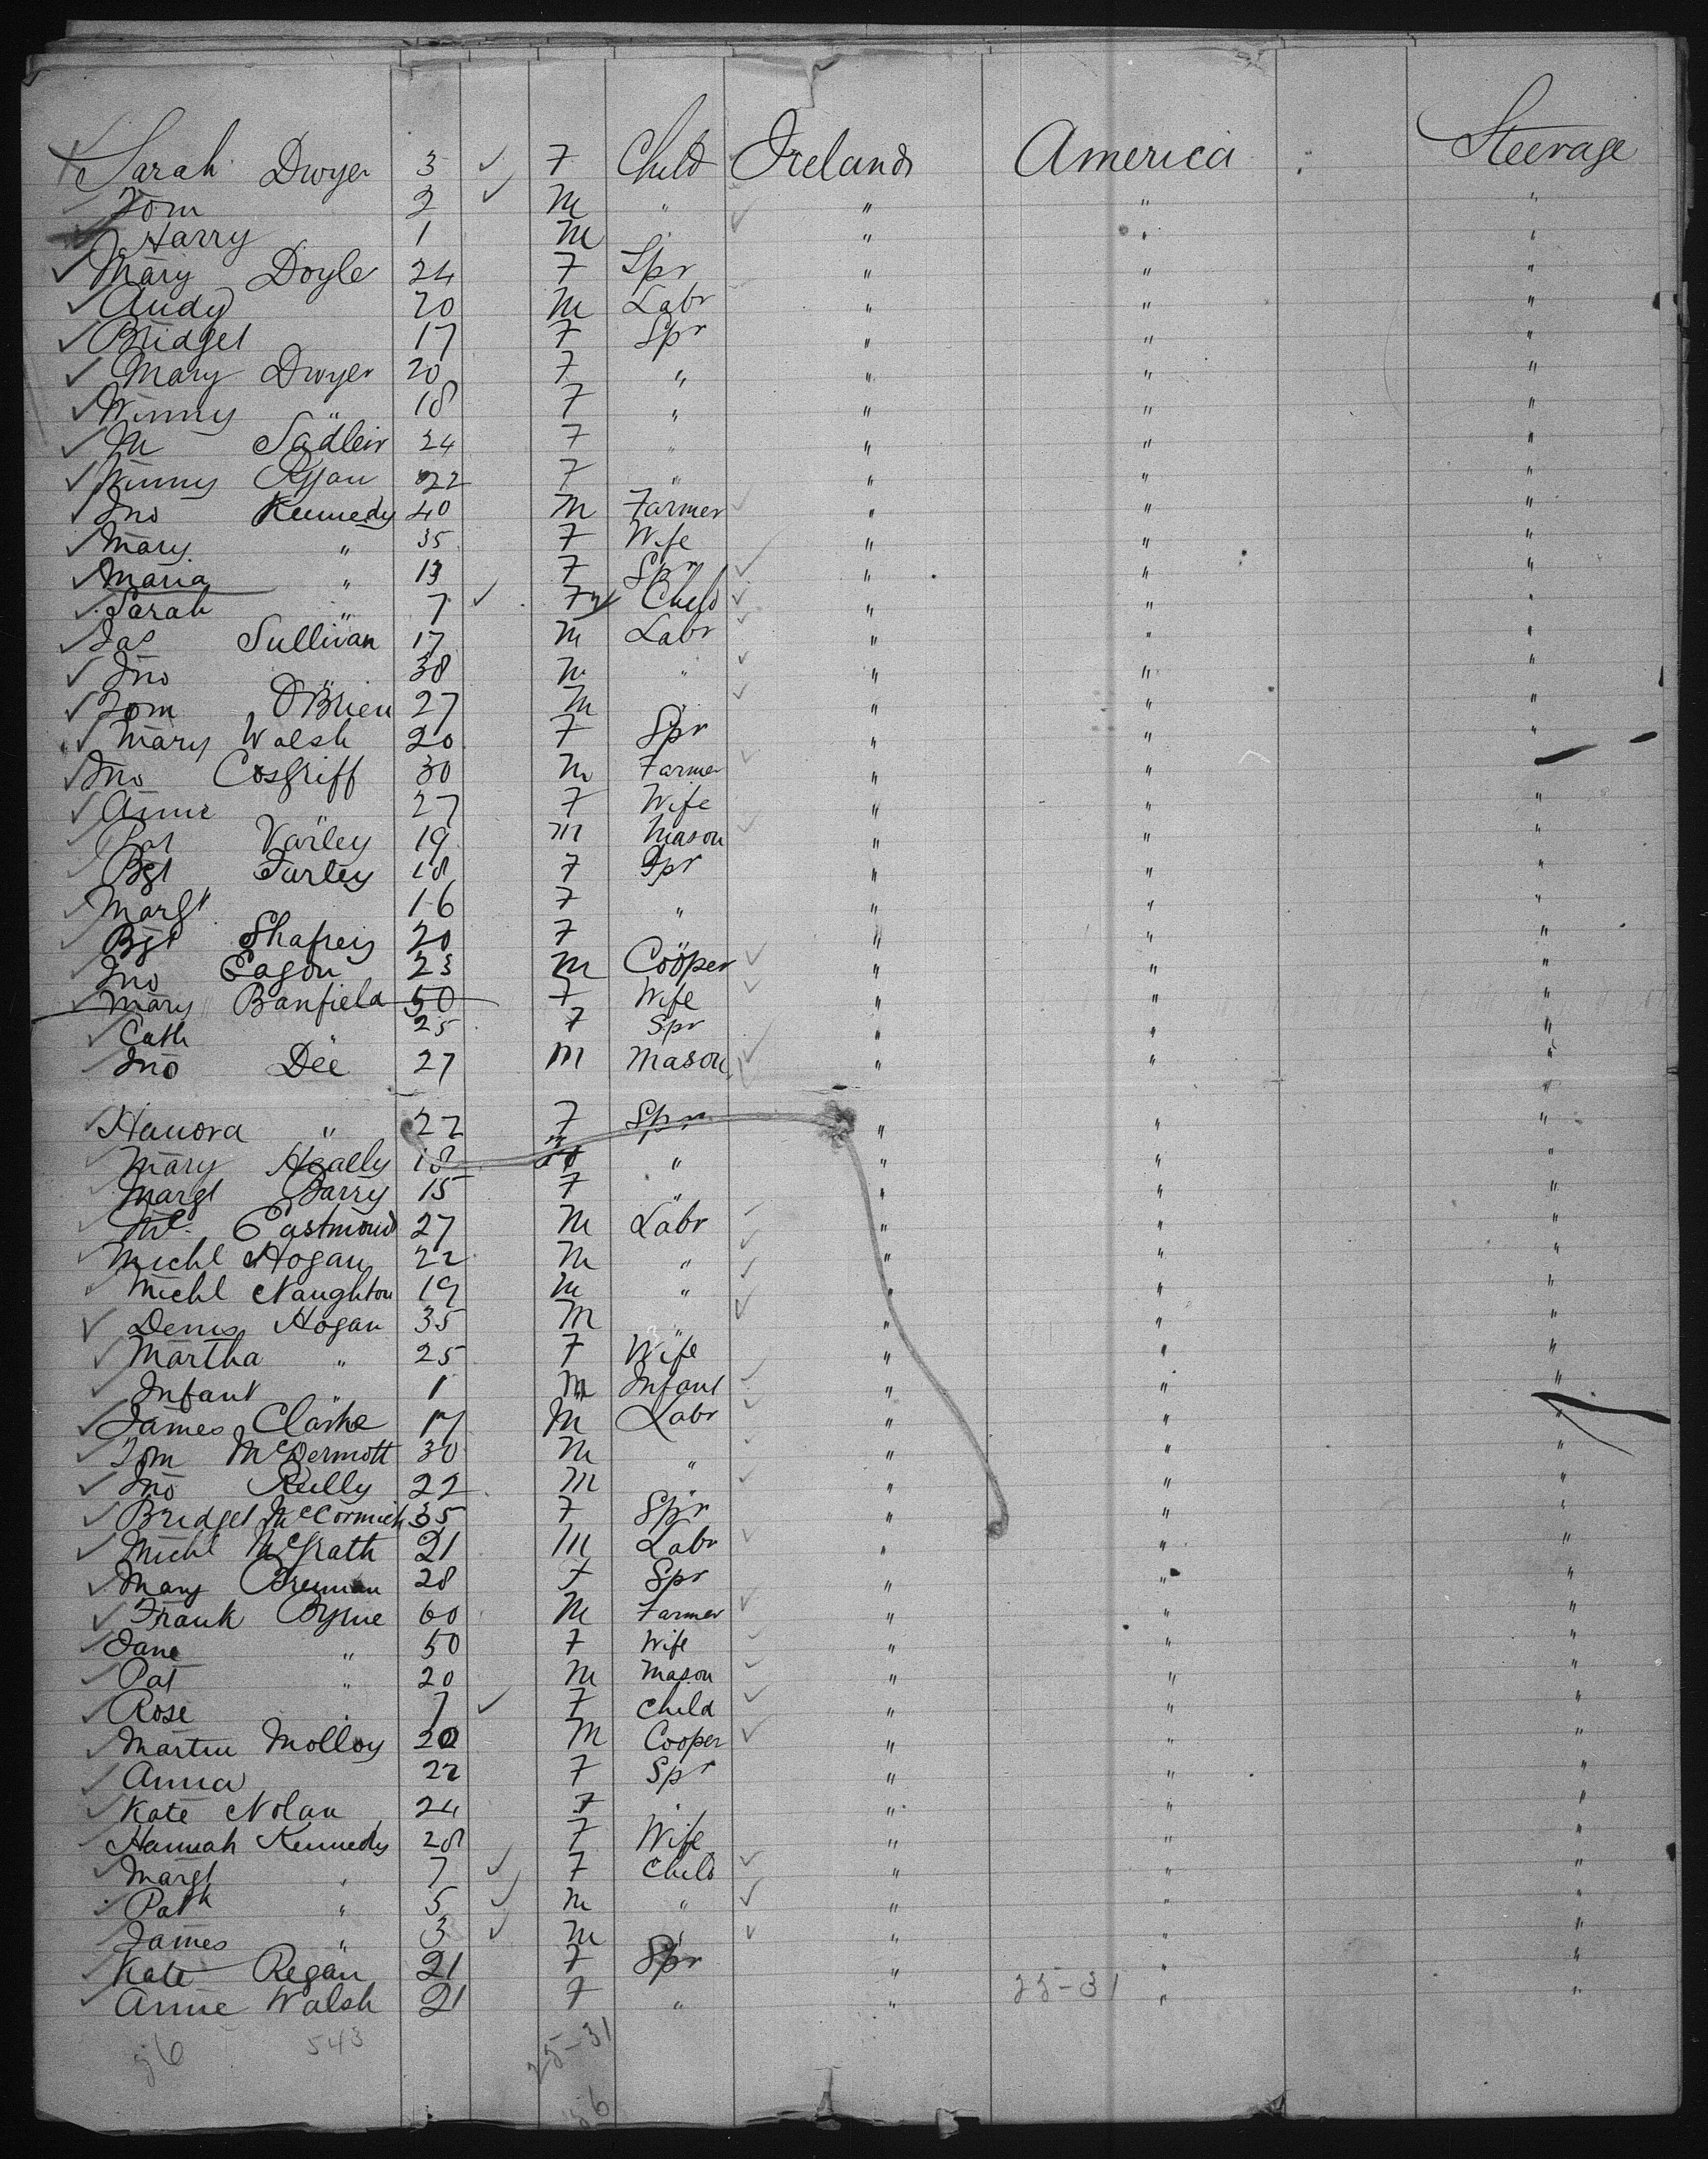 Sarah Dwyer 3 ✓ F Child Ireland America Steerage
Tom 2 ✓ M " " " "
Harry 1 M " " " "
Mary Doyle 24 F Spr " " "
Andy 20 M Labr " " "
Bridget 17 F Spr " " "
Mary Dwyer 20 F " " " "
Winny " 18 F " " " "
M Sadleir 24 F " " " "
Winny Ryan 22 F " " " "
Jno Kennedy 40 M Farmer " " "
Mary " 35 F Wife " " "
Maria " 13 F Spr " " "
Sarah " 7 ✓ F Child " " "
Jas Sullivan 17 M Labr " " "
Jno " 38 M " " " "
Tom O'Brien 27 M " " " "
Mary Walsh 20 F Spr " " "
Jno Cosgriff 30 M Farmer " " "
Anne " 27 F Wife " " "
Pat Varley 19 M Mason " " "
Bgt Farley 18 F Spr " " "
Margt 16 F " " " "
Bgt 20 F " " "
Jno Eagon 23 M Cooper " " "
Mary Banfield 50 F Wife " " "
Cath 25 F Spr " " "
Jno Dee 27 M Mason " " "
Hanora " 22 F Spr " " "
Mary Heally 18 " " " "
Margt Barry 15 F " " " "
Eastmond 27 M Labr " " "
Michl Hogan 22 M " " " "
Michl Naughton 19 M " " " "
Denis Hogan 35 M " " " "
Martha " 25 F Wife " " "
Infant " 1 M Infant " " "
James Clarke 17 M Labr " " "
Tom McDermott 30 M " " " "
Jno Reilly 22 M " " "
Bridget McCormick 35 F Spr " " "
Michl McGrath 21 M Labr " " "
Mary Brennan 28 F Spr " " "
Frank Byrne 60 M Farmer " " "
Jane " 50 F Wife " " "
Pat " 20 M Mason " " "
Rose " 7 ✓ F Child " " "
Martin Molloy 20 M Cooper " " "
Anna 22 F Spr " " "
Kate Nolan 24 F " " " "
Hannah Kennedy 28 F Wife " " "
Margt " 7 ✓ F Child " " "
Patk " 5 ✓ M " " " "
James " 3 ✓ M " " " "
Kate Regan 21 F Spr " " "
Anne Walsh 21 F " " 25-31 " "
543 25-31
56